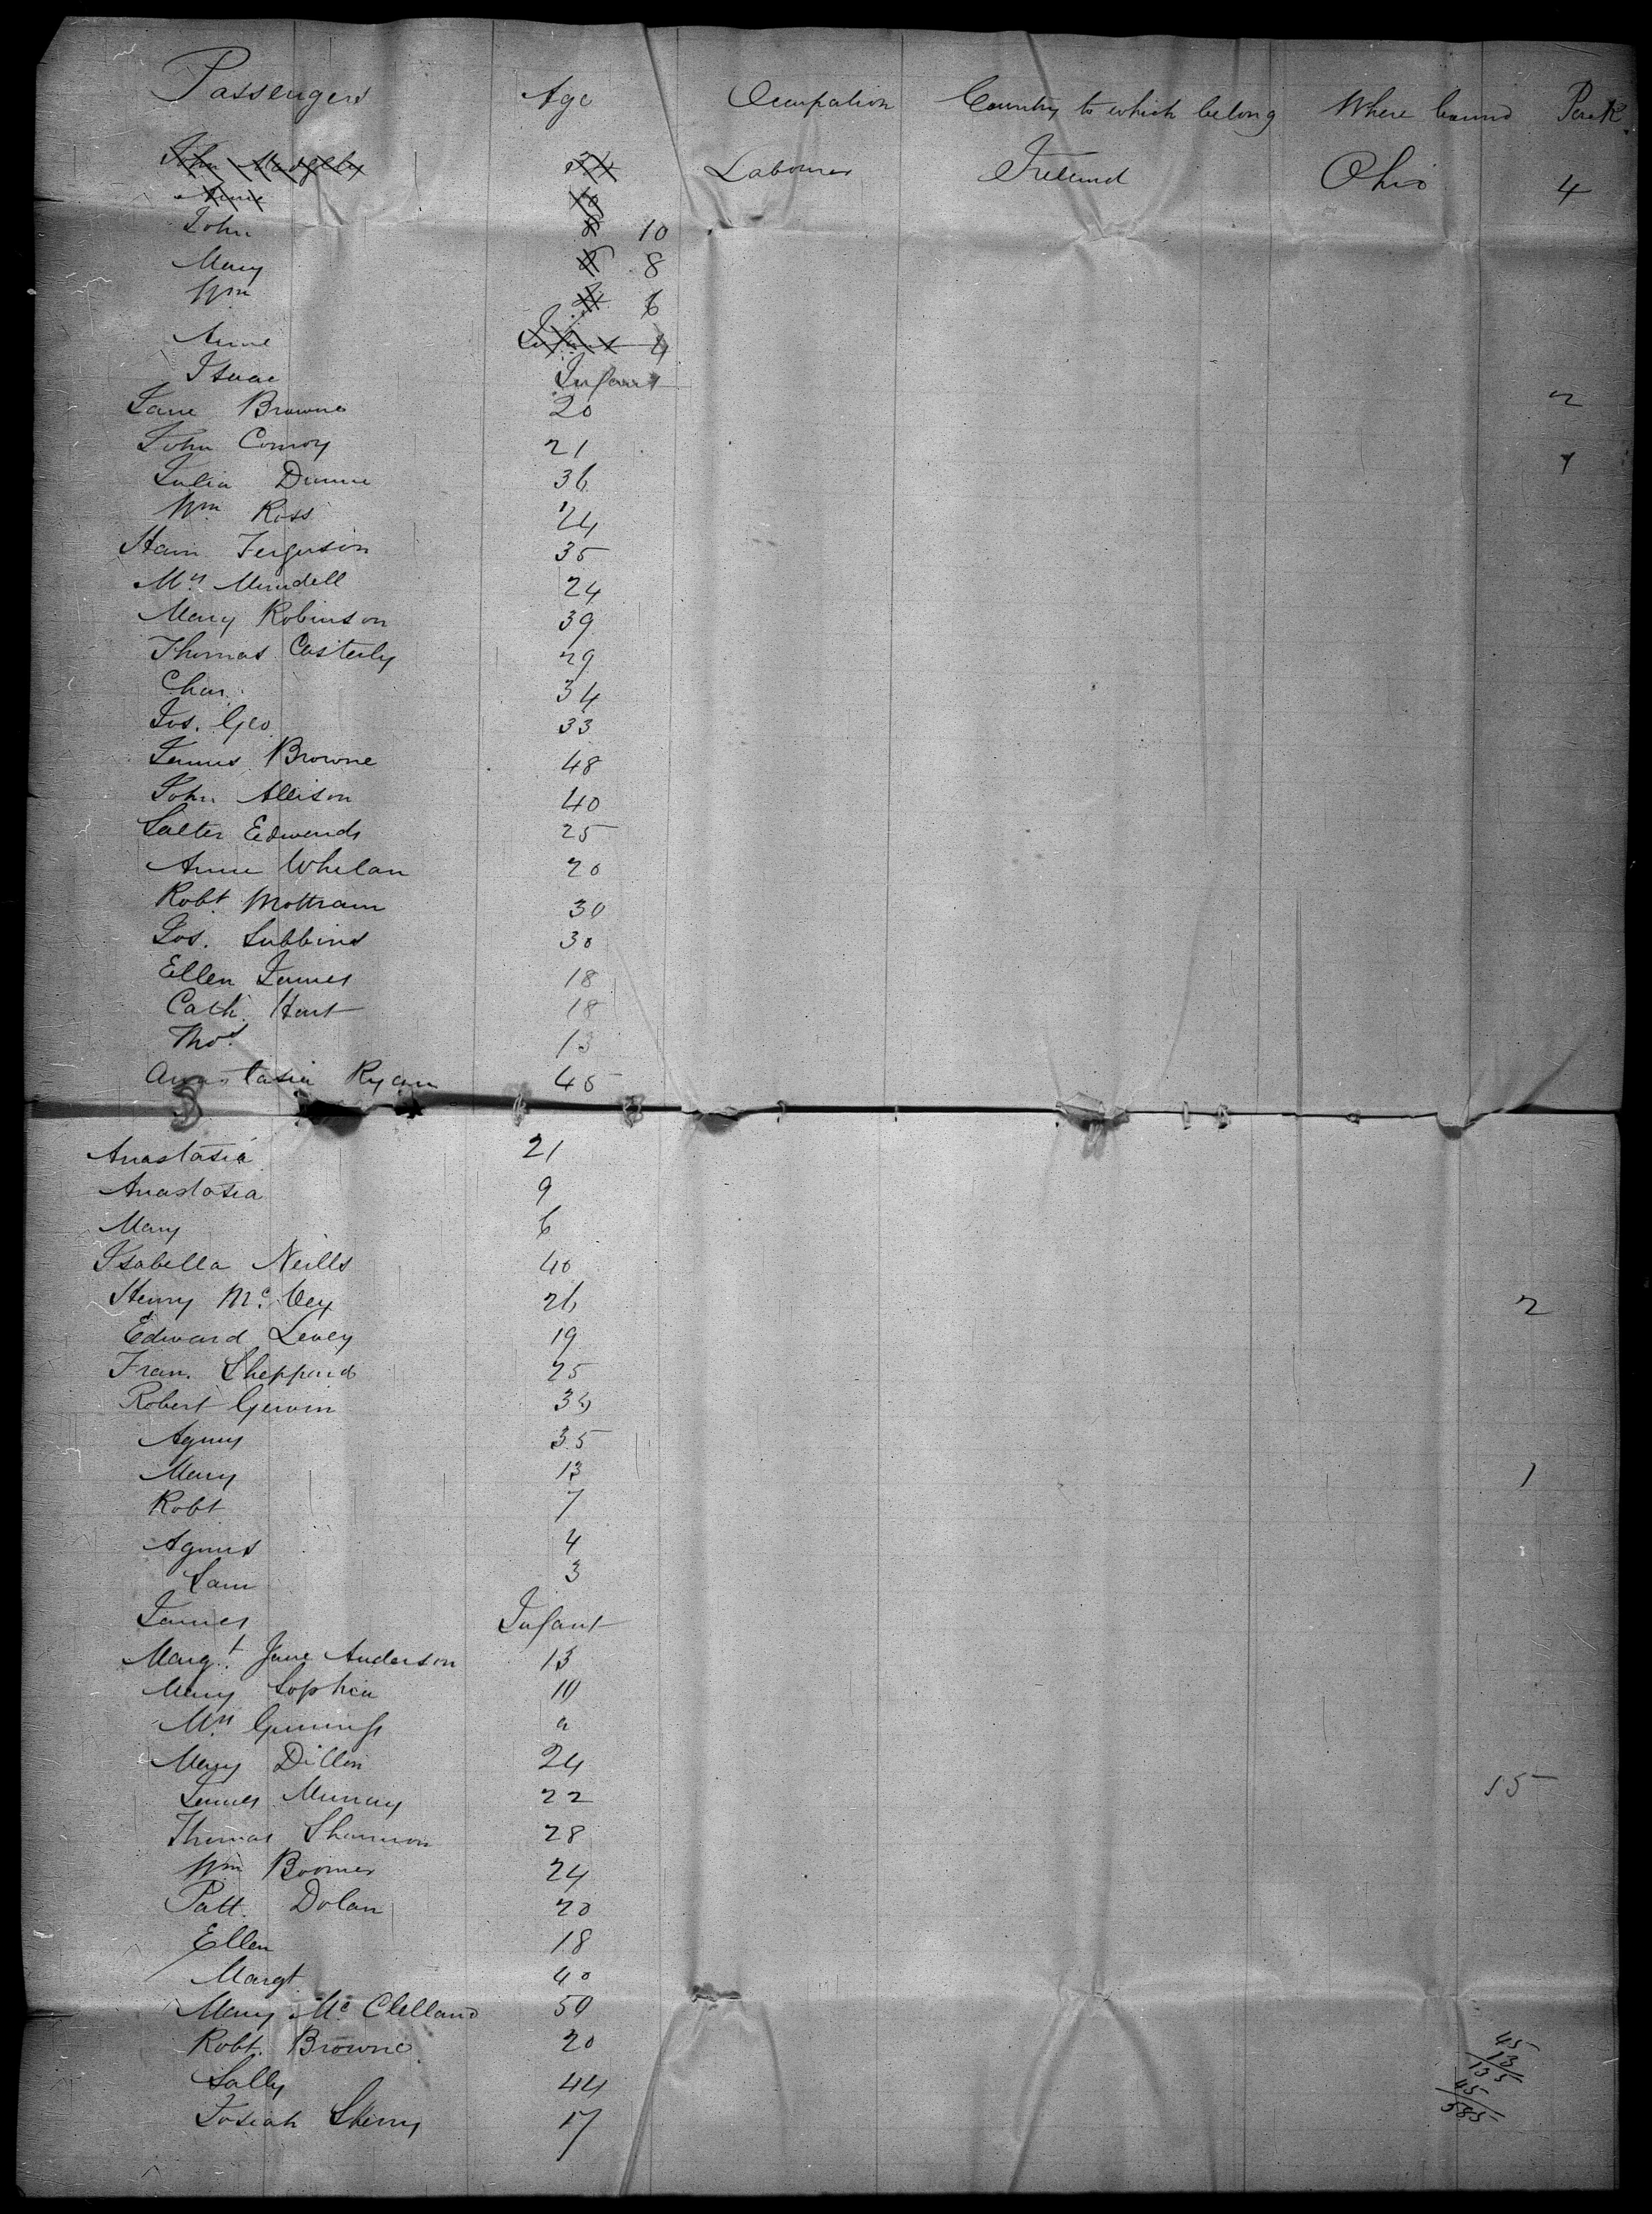 Passengers Age Occupation Country to which belong Where bound Pack
John 34 Labourer Ireland Ohio 4
Anne 10
John 8 10
Mary 6 8
Wm 4 6
Anne Infant 4
Isaac Infant
Jane Browne 20 2
John Conroy 21 1
Julia Dunne 36
Wm Ross 24
Ham Ferguson 35
Mrs Mundell 24
Mary Robinson 39
Thomas Casterly 29
Chas. 34
Jos. Geo. 33
James Browne 48
John Allison 40
Salter Edwards 25
Anne Whelan 20
Robt. Mottram 30
Jos. Lubbins 30
Ellen James 18
Cath. Hart 18
Thos. 13
Anastasia Ryan 45
Anastasia 21
Anastasia 9
Mary 6
Isabella Neills 40
Henry Mc.Vey 26 2
Edward Levey 19
Fran. Sheppard 25
Robert Gervin 35
Agnes 35
Mary 13 1
Robt 7
Agnes 4
Sam 3
James Infant
Margt. Jane Anderson 13
Mary Sophia 10
Mrs. a
Mary Dillon 24
James Murray 22 15
Thomas Shannon 28
Wm Boomer 24
Patt. Dolan 20
Ellen 18
Margt. 40
Mary Mc Clelland 50
Robt. Browne 20
Sally 44
Josiah 17
45
13
135
45
585